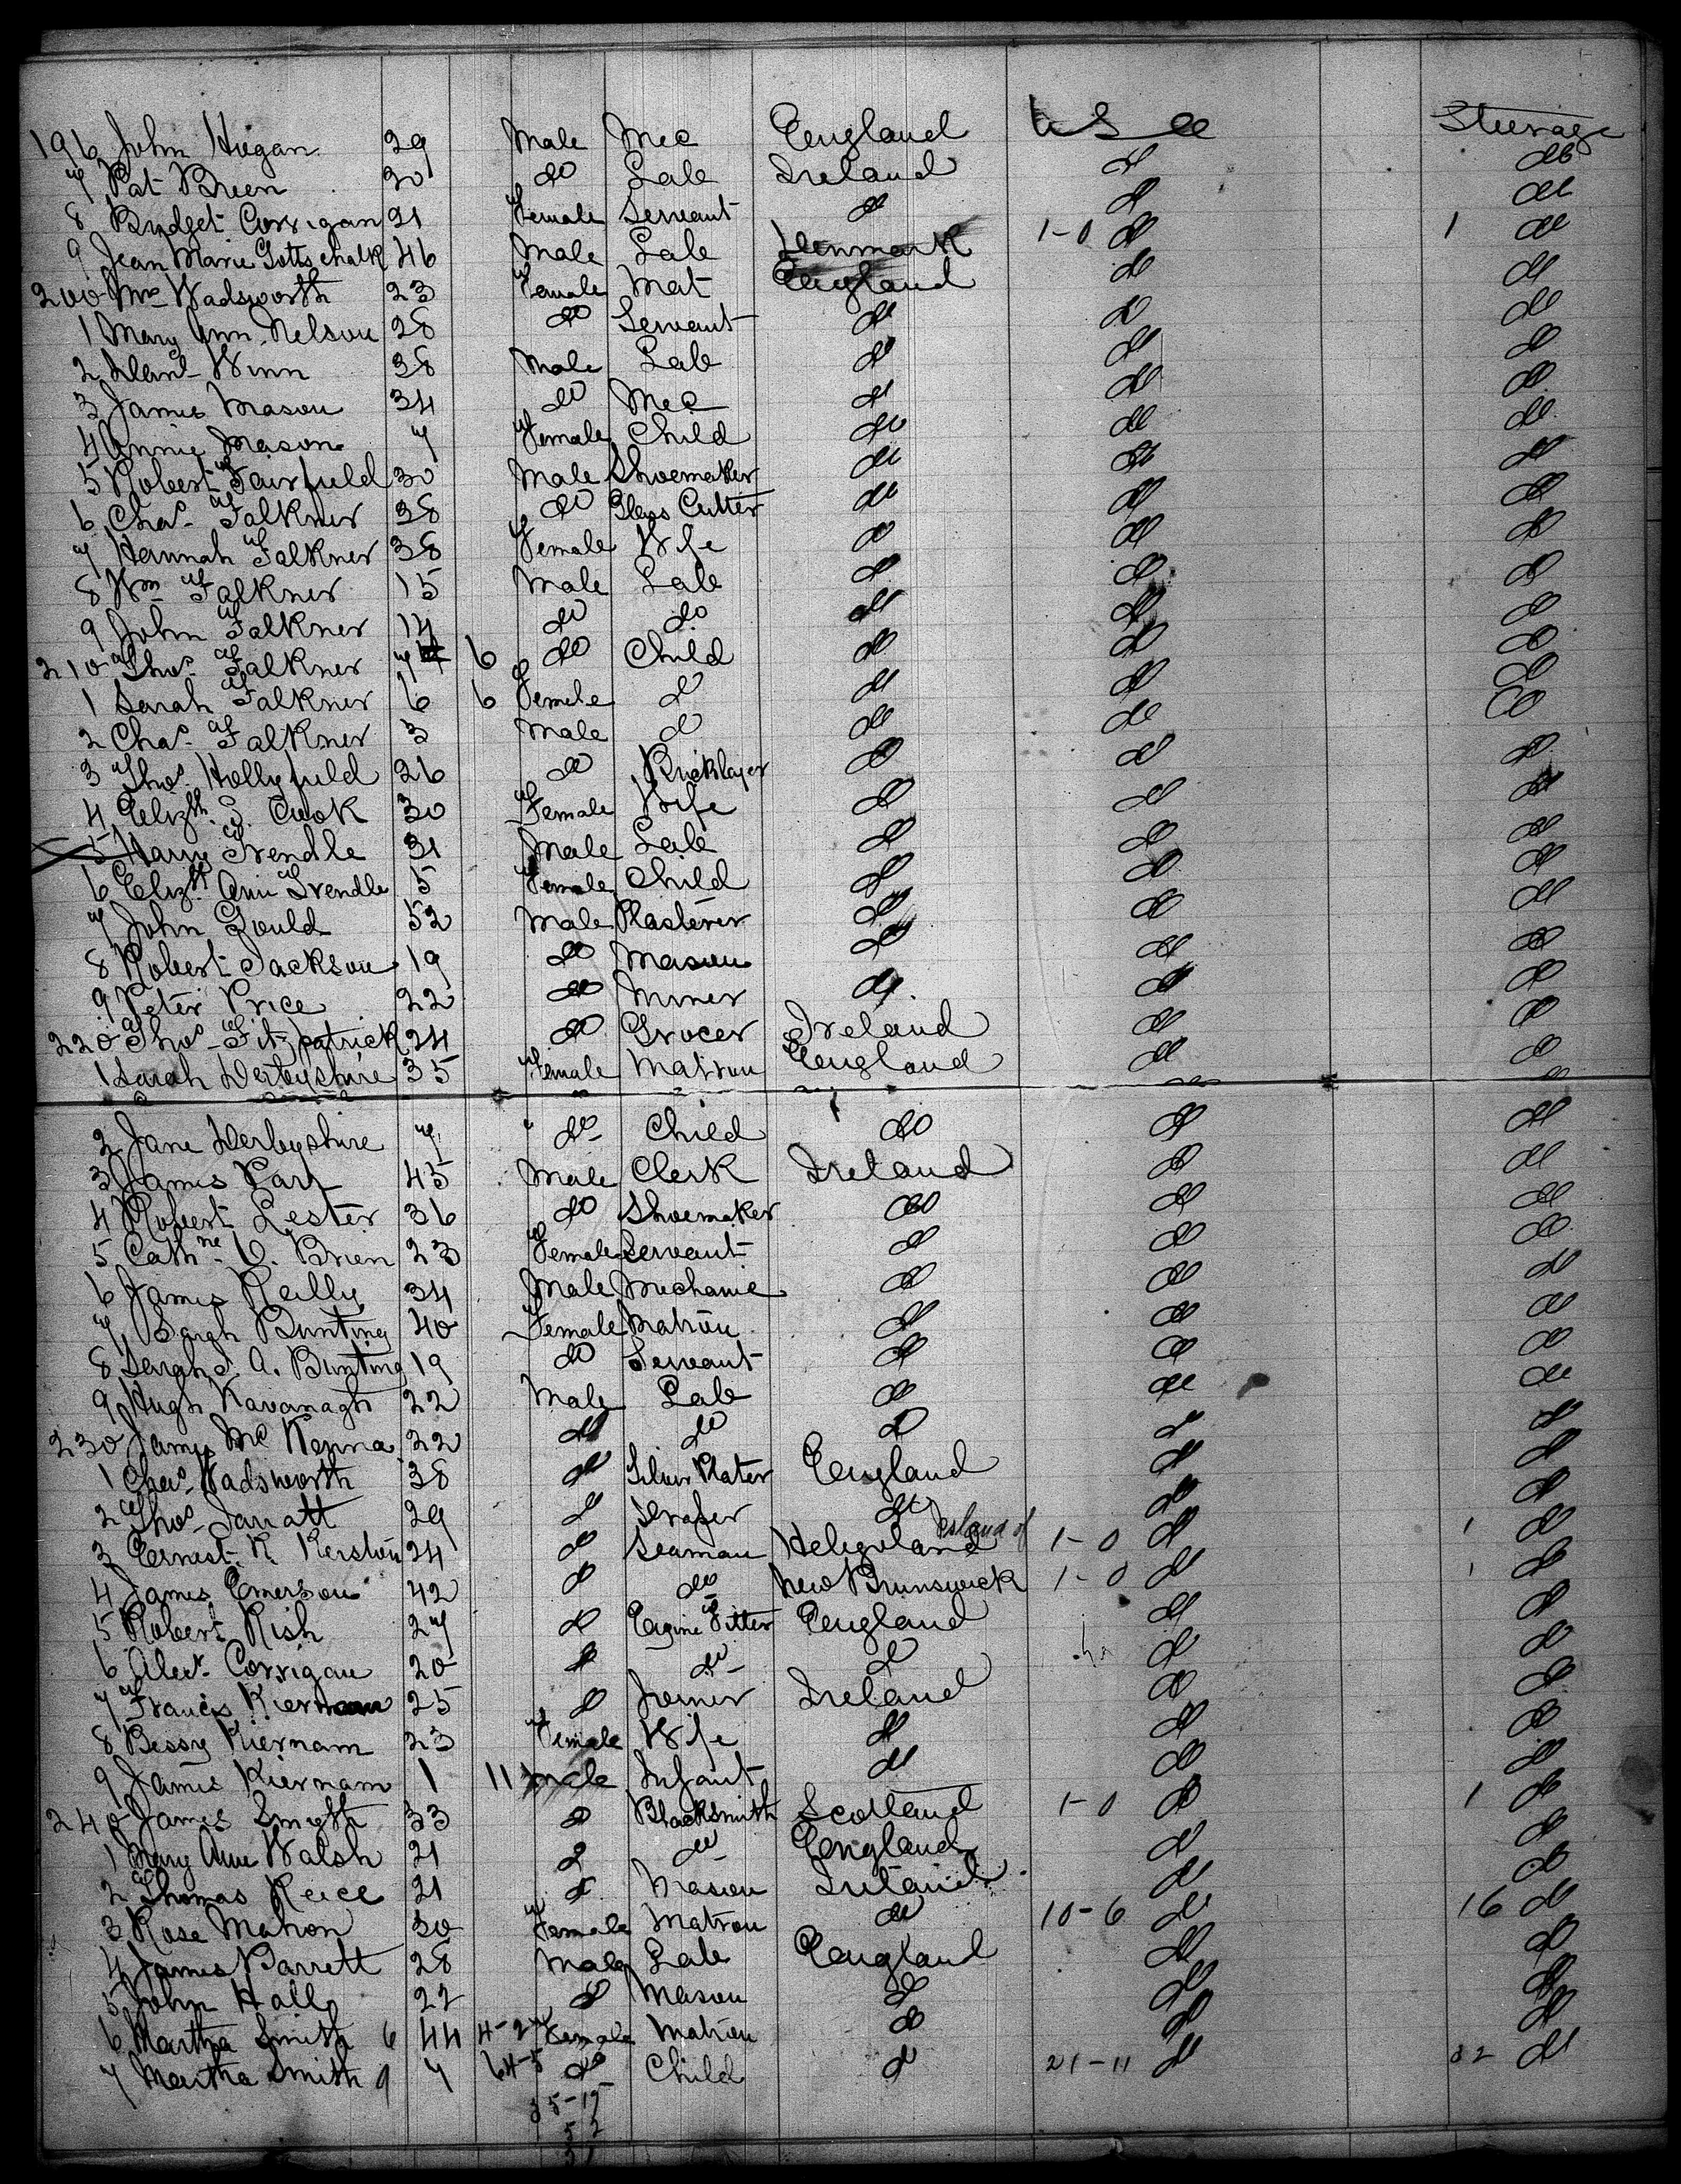 196 John Hogan 29 Male Mec England U S A Steerage
7 Pat Brien 30 do Lab Ireland do do
8 Bridget Corrigan 21 Female Servant do do do
9 Jean Marie Gottschalk 46 Male Lab Denmark 1-0 do 1 do
200 Mrs Wadsworth 23 Female Mat England do do
1 Mary Ann Nelson 28 do Servant do do do
2 Danl Winn 38 Male Lab do do do
3 James Mason 34 do Mec do do do
4 Annie Mason 7 Female Child do do do
5 Robert Fairfield 30 Male Shoemaker do do do
6 Chas. Falkner 38 do Glass Cutter do do do
7 Hannah Falkner 38 Female Wife do do do
8 Wm Falkner 15 Male Lab do do do
9 John Falkner 14 do do do do do
210 Thos. Falkner 7 6 do Child do do do
1 Sarah Falkner 6 6 Female do do do do
2 Chas. Falkner 3 Male do do do do
3 Thos. Hollyfield 26 do Bricklayer do do do
4 Elizth. S. Cook 30 Female Wife do do do
5 Harry Trendle 31 Male Lab do do do
6 Elizth Ann Trendle 5 Female Child do do do
7 John Gould 52 Male Plasterer do do do
8 Robert Jackson 19 do Mason do do do
9 Peter Price 22 do Miner do do do
220 Thos Fitzpatrick 24 do Grocer Ireland do do
1 Sarah Derbyshire 35 Female Matron England do do
2 Jane Derbyshire 7 do Child do do do
3 James Parr 45 Male Clerk Ireland do do
4 Robert Lester 36 do Shoemaker do do do
5 Cathne O. Brien 23 Female Servant do do do
6 James Reilly 34 Male Mechanic do do do
7 Sarah Bunting 40 Female Matron do do do
8 Sarah A. Bunting 19 do Servant do do do
9 Hugh Kavanagh 22 Male Lab do do do
230 James McKenna 22 do do do do do
1 Chas. Wadsworth 38 do Silver Plater England do do
2 Thos Jarratt 29 do Draper do do do
3 Ernest. R Kerston 24 do Seaman Island of Heligoland 1-0 do 1 do
4 James Emerson 42 do do New Brunswick 1-0 do 1 do
5 Robert Rish 27 do Engine Fitter England do do
6 Alexr. Corrigan 20 do do do do do
7 Francis Kiernam 25 do Joiner Ireland do do
8 Bessy Kiernam 23 Female Wife do do do
9 James Kiernam 1 11 Male Infant do do do
240 James Smyth 33 do Blacksmith Scotland 1-0 do 1 do
1 Mary Anne Walsh 21 do do England do do
2 Thomas Reice 21 do Mason Ireland do do
3 Rose Mahon 30 Female Matron do 10-6 do 16 do
4 James Barrett 28 Male Lab England do do
5 John Hall 22 do Mason do do do
6 Martha Smith 6 44 4-2 Female Matron do do do
7 Martha Smith 9 7 64-5 do Child do 21-11 do 32 do
35-19
52